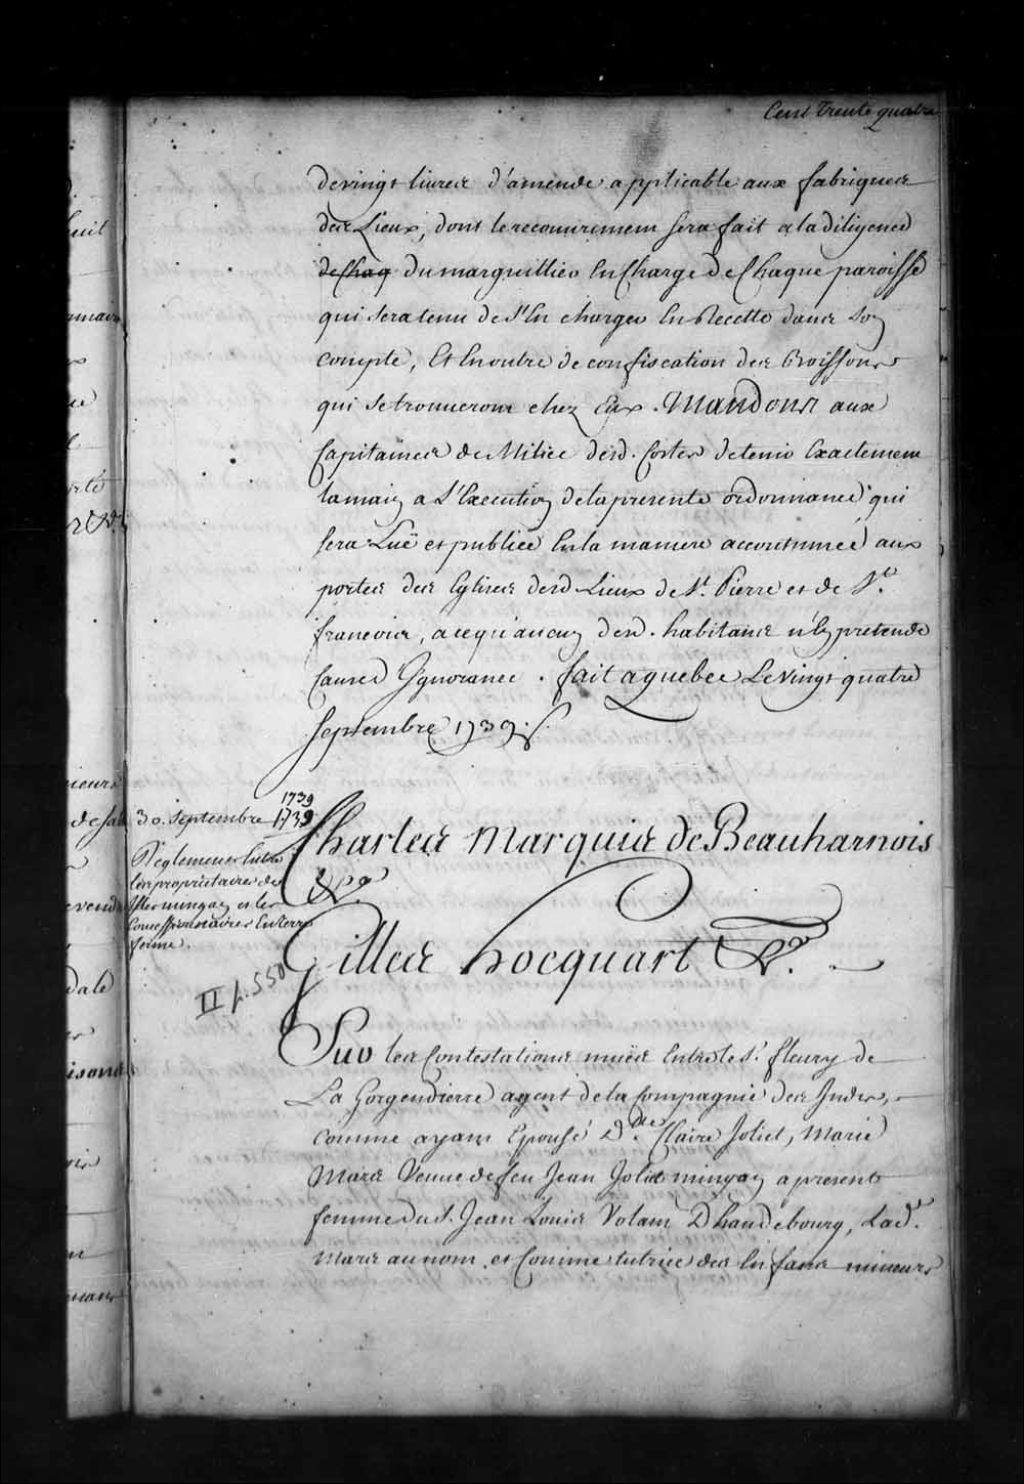 Cent Trente quatre
de vingt livres d'amende applicable aux fabriques
des Lieux, dont le recouvrement sera fait a la diligence
de chaq du marguillier En charge de Chaque paroisse
qui sera tenu de s'En charger En Recette dans son
compte, Et En outre de confiscation des Boissons
qui se trouveront chez Eux. Mandons aux
Capitaines de Milice desd. Costes de tenir Exactement
la main a L'Execution de la presente ordonnance qui
sera Luë et publiée En la maniere accoutumée aux
portes des Eglises desd. Lieux de St. Pierre et de St.
francois, a ce qu'aucun desd. habitans n'En pretende
Cause d'Ignorance. fait a quebec Le vingt quatre
Septembre 1739 ./.
30. Septembre 1739
1739
Reglement Entre
les proprietaires des
Isles mingan et les
Concessionnaires En terre
ferme.
II p. 550
Charles Marquis de Beauharnois
&ca.
Gilles hocquart &ca.
Sur les Contestations muës Entre le Sr. fleury de
La Gorgendiere agent de la Compagnie des Indes,
comme ayant Epousé Dlle. Claire Joliet, Marie
Mars Veuve de feu Jean Joliet mingan a present
femme du S. Jean Louis Volant Dhaudebourg, Lade.
Mars au nom et Comme tutrice des Enfans mineurs